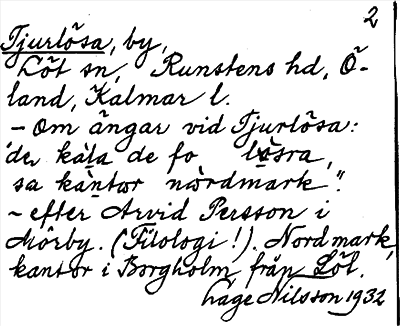 2
Tjurlösa, by,
Löt sn, Runstens hd, Ö-
land, Kalmar l.
- Om ängar vid Tjurlösa:
"de kala de fo lösra,
sa kantor nordmark".
- efter Arvid Persson i
Mörby. (Filologi!). Nordmark,
kantor i Borgholm, från Löt.
Läge Nilsson 1932